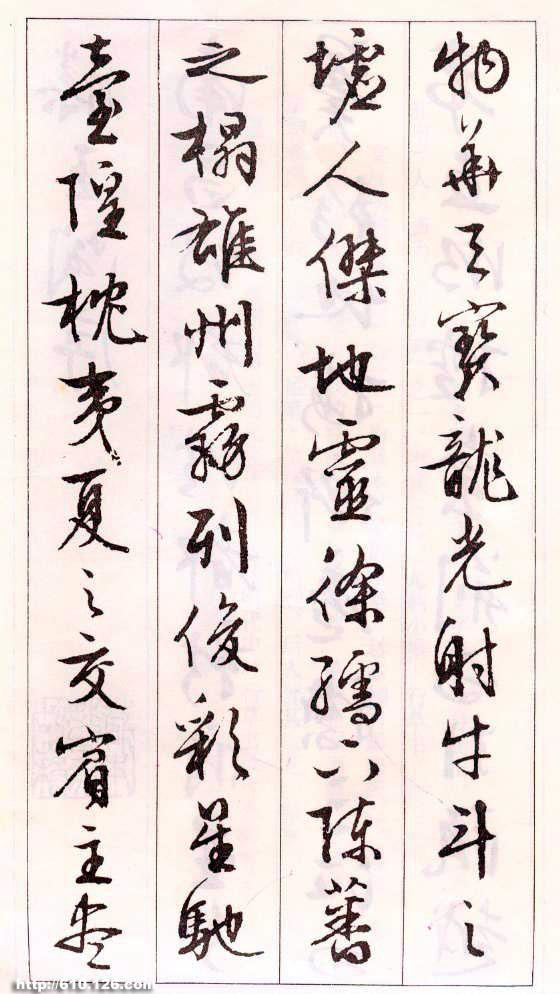 物華天寶龍光射牛斗之
墟人傑地靈徐孺下陳蕃
之榻雄州霧列俊彩星馳
臺隍枕夷夏之交賓主盡
http://610.126.com